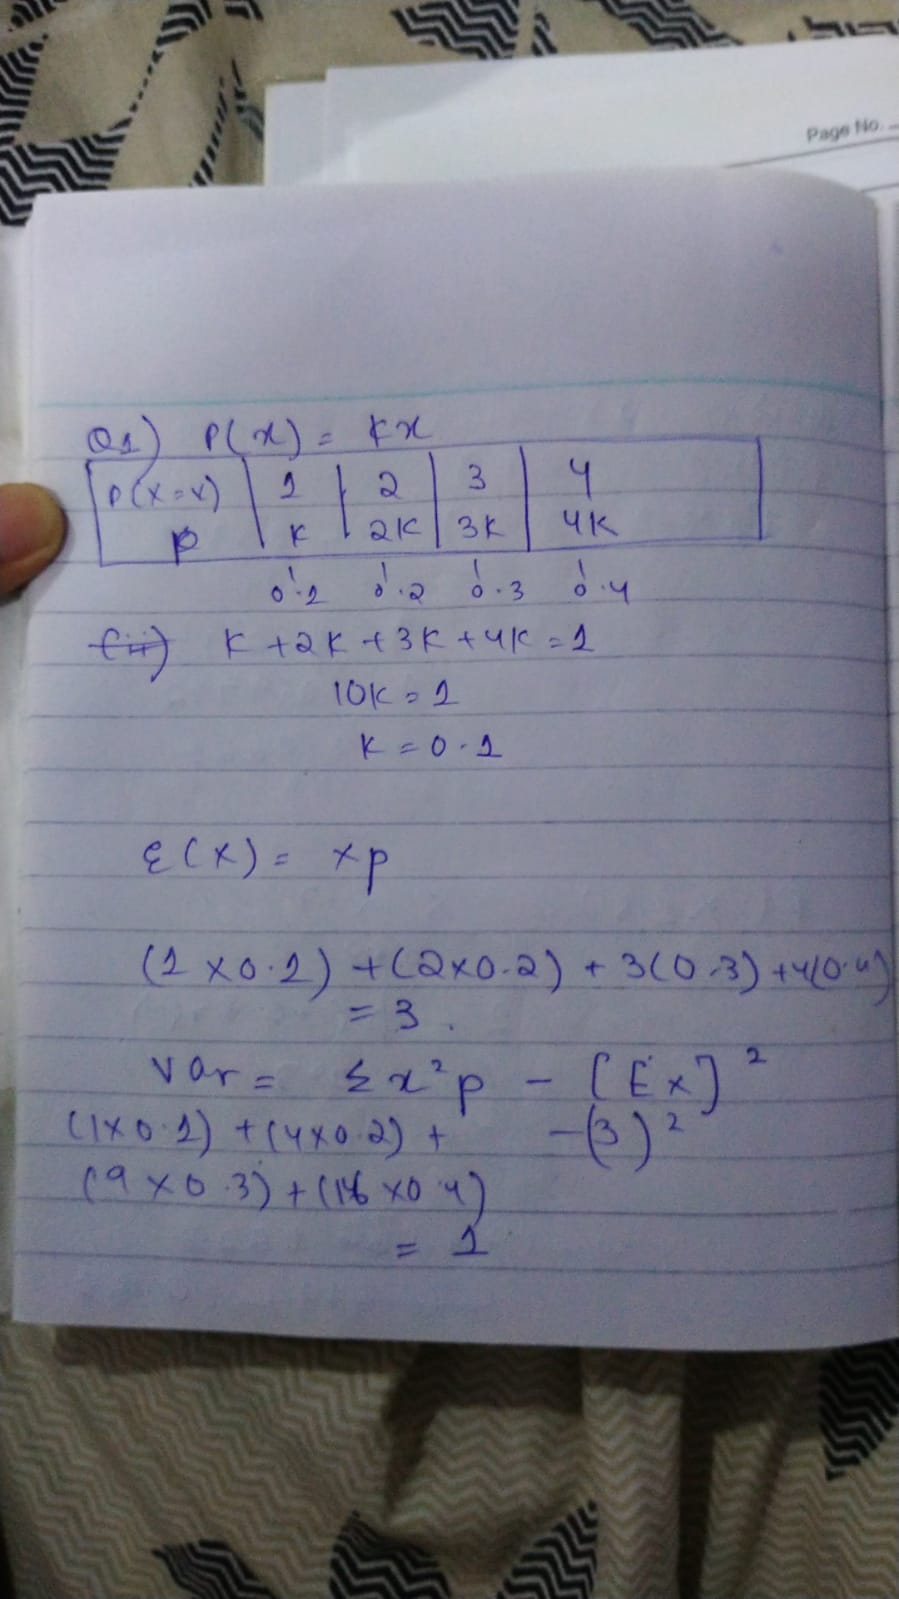 Page No.
Q1) P(x) = kx
P(X=x) 1 2 3 4
p K 2K 3K 4K
0.1 0.2 0.3 0.4
(ii) K + 2K + 3K + 4K = 1
10K = 1
K = 0.1
E(X) = xp
(1 x 0.1) + (2x0.2) + 3(0.3) + 4(0.4)
= 3.
Var = Σx²p - [Ex]²
(1x0.1) + (4x0.2) + -(3)²
(9 x 0.3) + (16 x0.4)
= 1